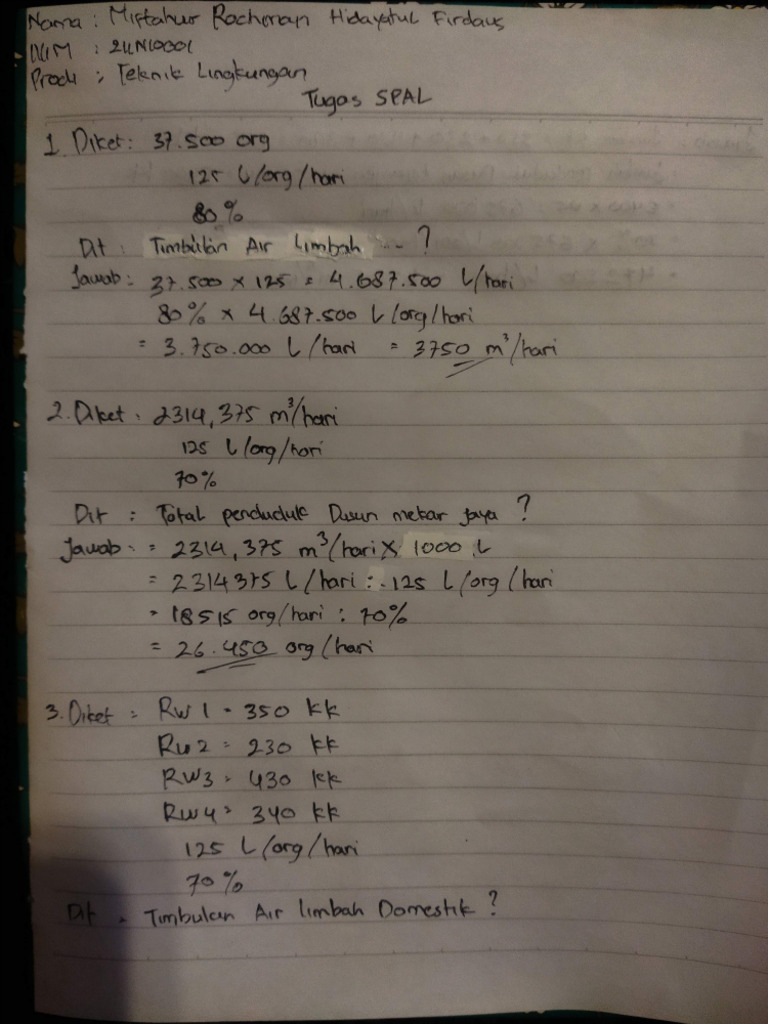 Nama : Miftahur Rochman Hidayatul Firdaus
NIM : 21N10001
Prodi : Teknik Lingkungan
Tugas SPAL
1. Diket : 37.500 org
125 L/org/hari
80%
Dit : Timbulan Air Limbah ... ?
Jawab : 37.500 x 125 = 4.687.500 L/hari
80% x 4.687.500 L/org/hari
= 3.750.000 L/hari = 3750 m³/hari
2. Diket : 2314,375 m³/hari
125 L/org/hari
70%
Dit : Total penduduk Dusun mekar jaya ?
Jawab : = 2314,375 m³/hari x 1000 L
= 2314375 L/hari : 125 L/org/hari
= 18515 org/hari : 70%
= 26.450 org/hari
3. Diket : RW 1 = 350 KK
RW 2 = 230 KK
RW3 = 430 KK
RW4 = 340 KK
125 L/org/hari
70%
Dit : Timbulan Air limbah Domestik ?